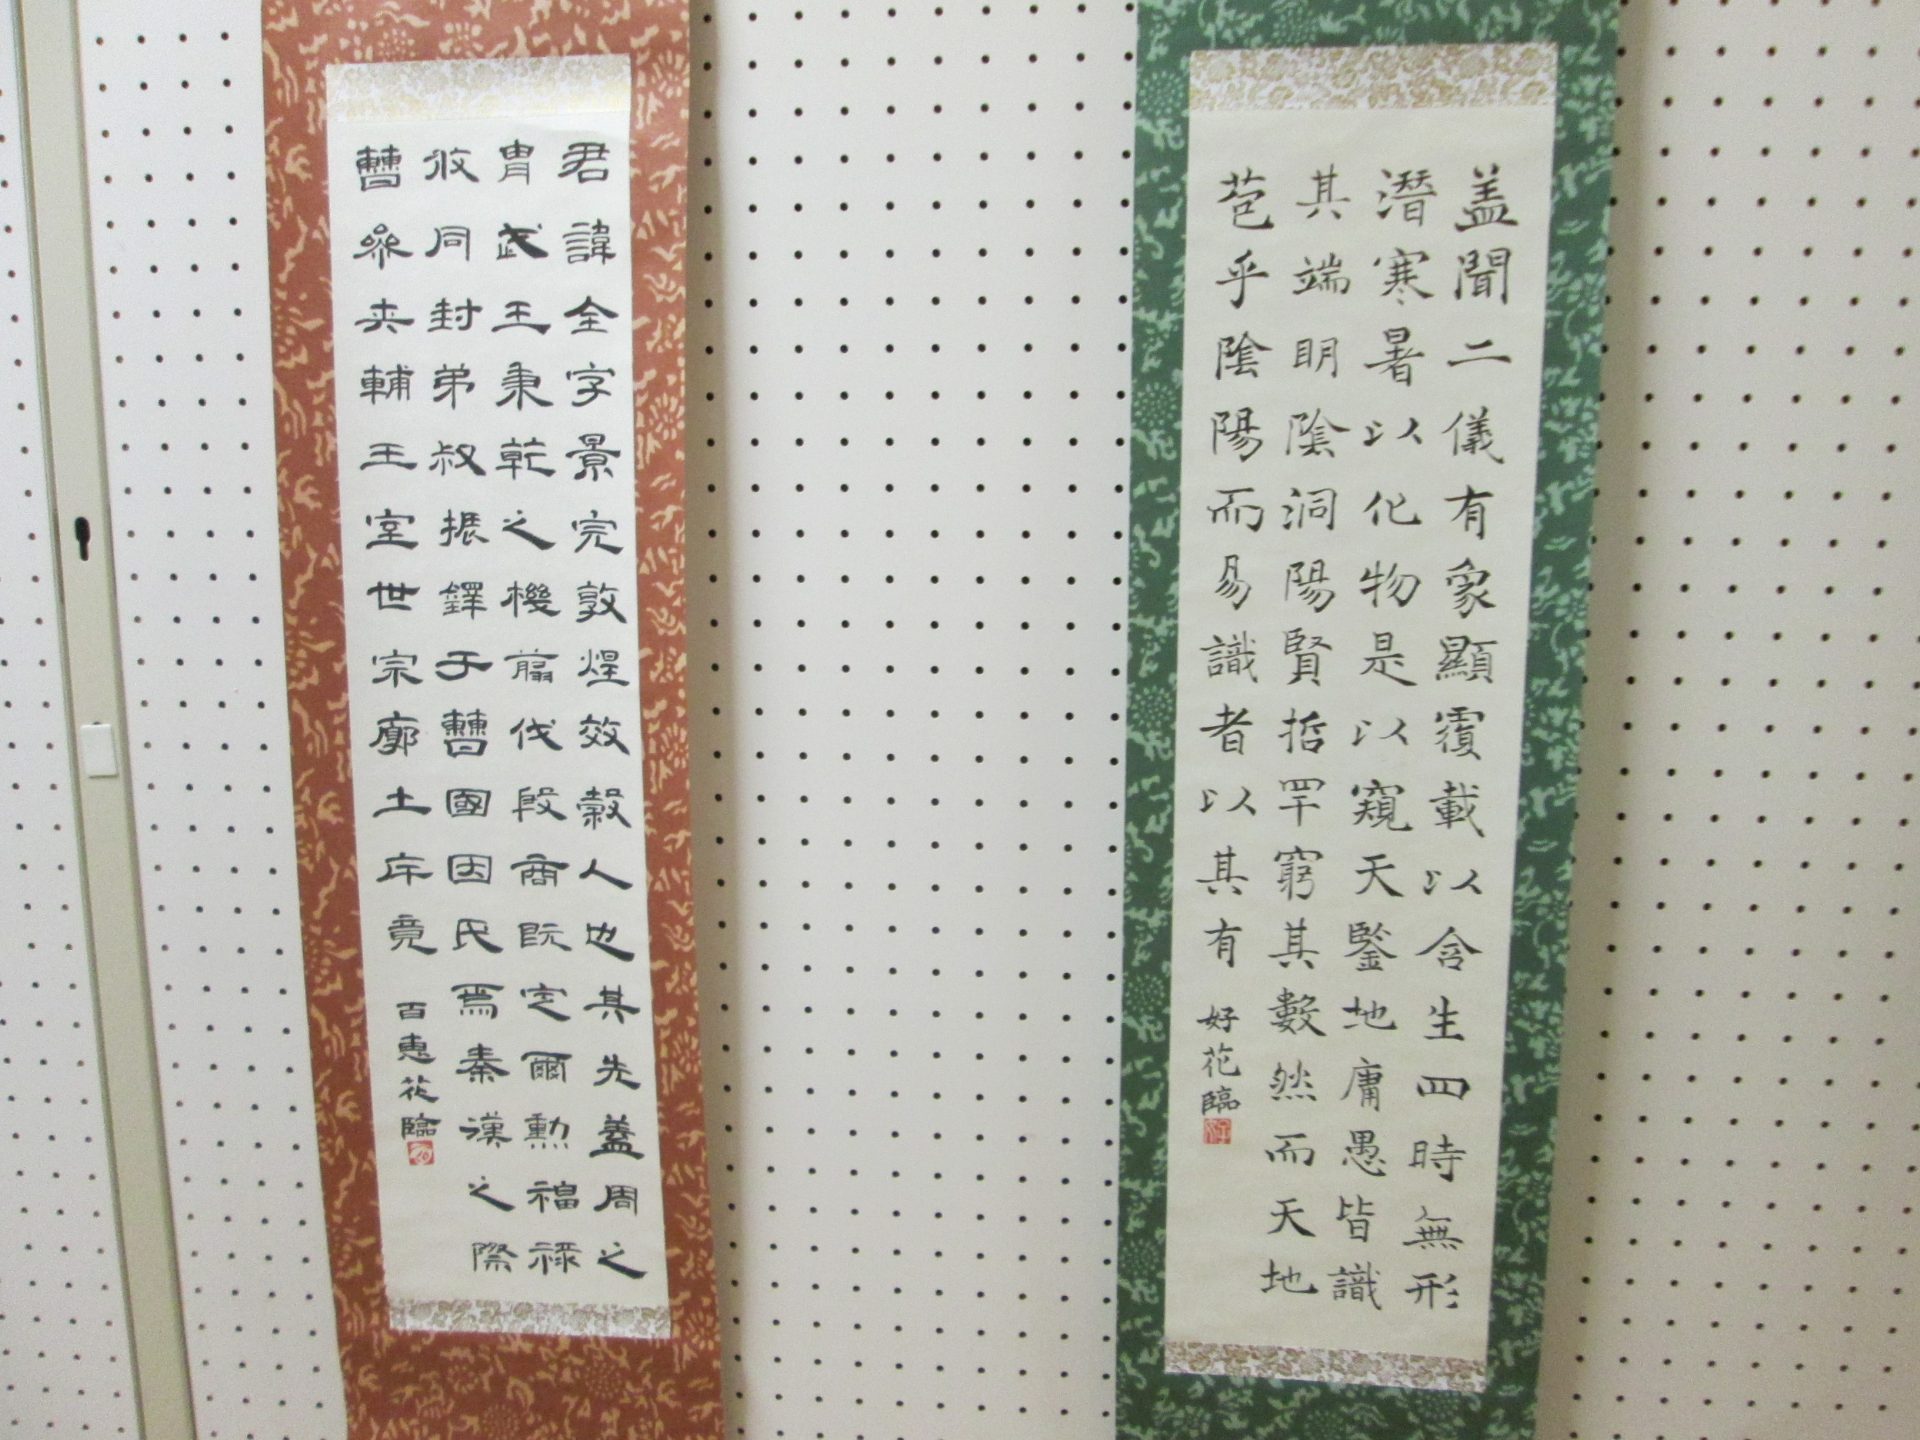 盖聞二儀有象顯覆載以含生四時無形
潛寒暑以化物是以窺天鑒地庸愚皆識
其端明陰洞陽賢哲罕窮其數然而天地
苞乎陰陽而易識者以其有
好花臨
君諱全字景完敦煌效穀人也其先蓋周之
胄武王秉乾之機翦伐殷商既定爾勳福祿
攸同封弟叔振鐸于曹國因氏焉秦漢之際
曹參夾輔王室世宗廓土斥竟
百恵花臨